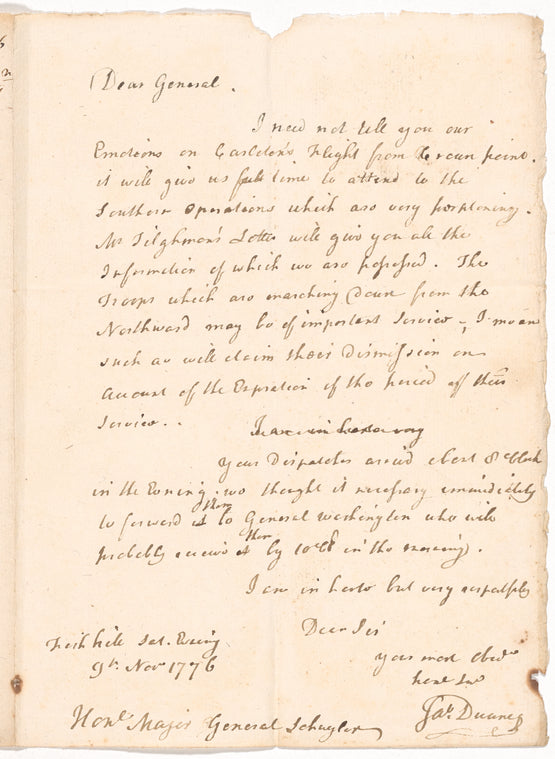 Dear General.
I need not tell you our
Emotions on Carleton's Flight from Crown point.
it will give us full time to attend to the
Southern Operations which are very perplexing.
Mr Tilghman's Letter will give you all the
Information of which we are possessed. The
Troops which are marching down from the
Northward may be of important Service, I mean
such as will claim their Dismission on
account of the Expiration of the period of their
Service..
Your Dispatches arriv'd about 8 oClock
in the Evening. we thought it necessary immediately
them
to forward it to General Washington who will
them
probably receive it by 10 oCl in the morning.
I am in haste but very respectfully
Dear Sir
Fish kill Sat. Evening
your most Obedt
9th Novr 1776
hble Ser
Jas. Duane
Honle Major General Schuyler